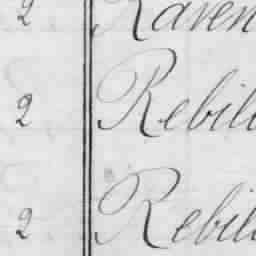 2 Raven
2 Rebill
2 Rebill